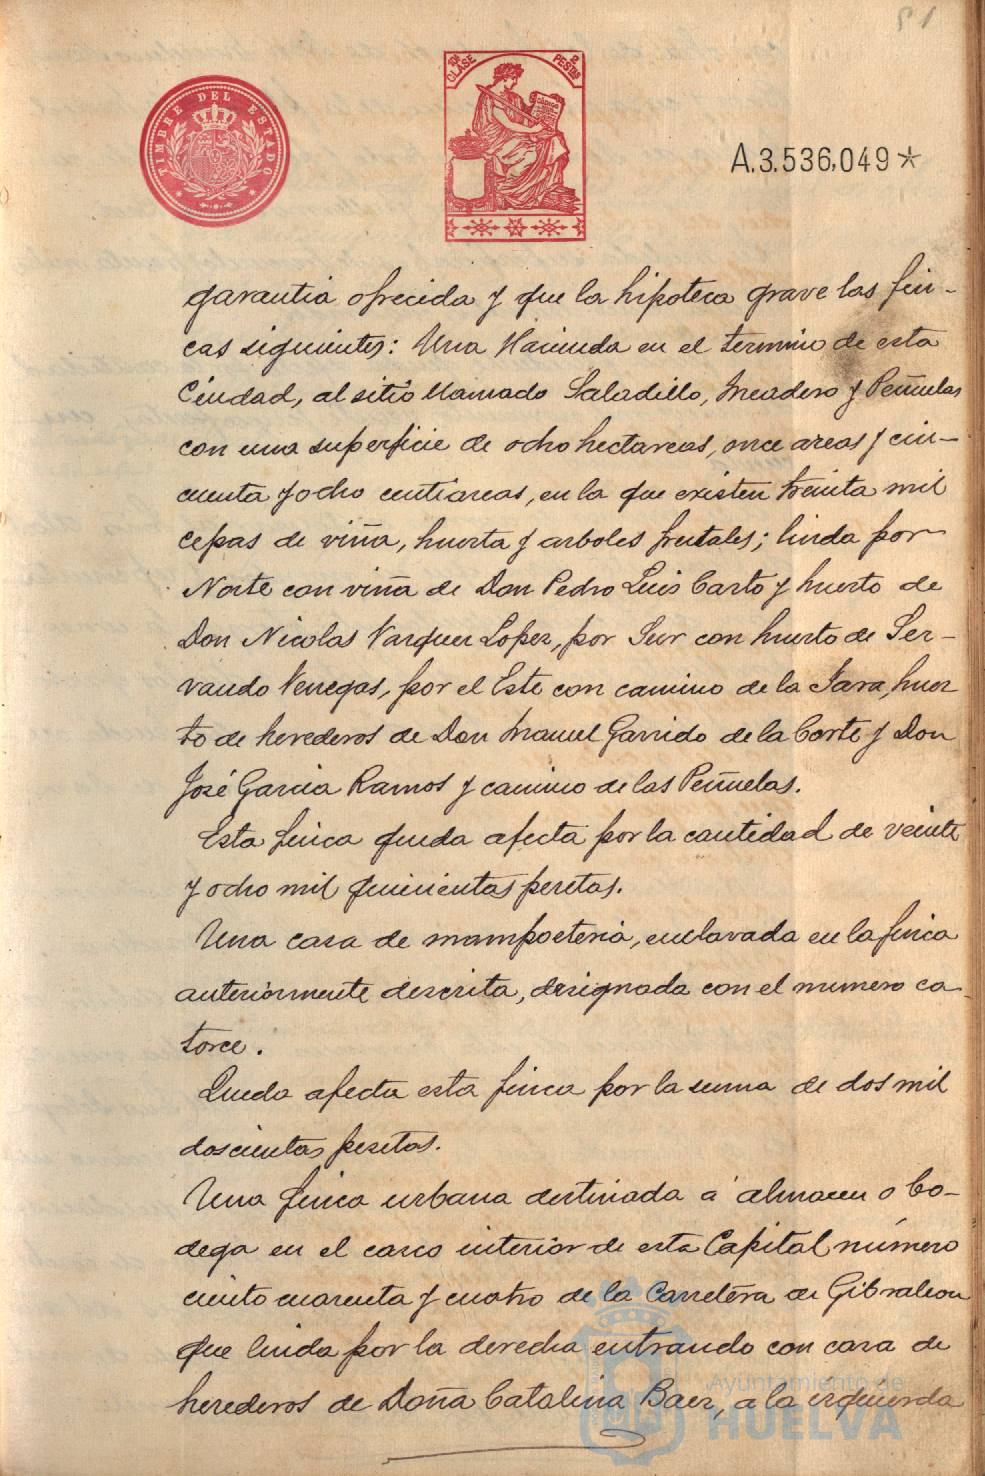 51
TIMBRE DEL ESTADO
10ª CLASE
2 PESTAS
CÓDIGO
A.3.536,049*
garantia ofrecida y que la hipoteca grave las fin-
cas siguientes: Una Hacienda en el termino de esta
Ciudad, al sitio llamado Saladillo, Meadero y Peñuelas
con una superficie de ocho hectareas, once areas y cin-
cuenta y ocho centiareas, en la que existen treinta mil
cepas de viña, huerta y arboles frutales; linda por
Norte con viña de Don Pedro Luis Carto y huerto de
Don Nicolas Vazquez Lopez, por Sur con huerto de Ser-
vando Venegas, por el Este con camino de la Jara, huer
to de herederos de Don Manuel Garrido de la Corte y Don
José Garcia Ramos y camino de las Peñuelas.
Esta finca queda afecta por la cantidad de veinte
y ocho mil quinientas pesetas.
Una casa de mamposteria, enclavada en la finca
anteriormente descrita, designada con el numero ca-
torce.
Queda afecta esta finca por la suma de dos mil
doscientas pesetas.
Una finca urbana destinada á almacen o bo-
dega en el casco interior de esta Capital número
ciento cuarenta y cuatro de la Carretera de Gibraleon
que linda por la derecha entrando con casa de
herederos de Doña Catalina Baez, a la izquierda
Ayuntamiento de
HUELVA